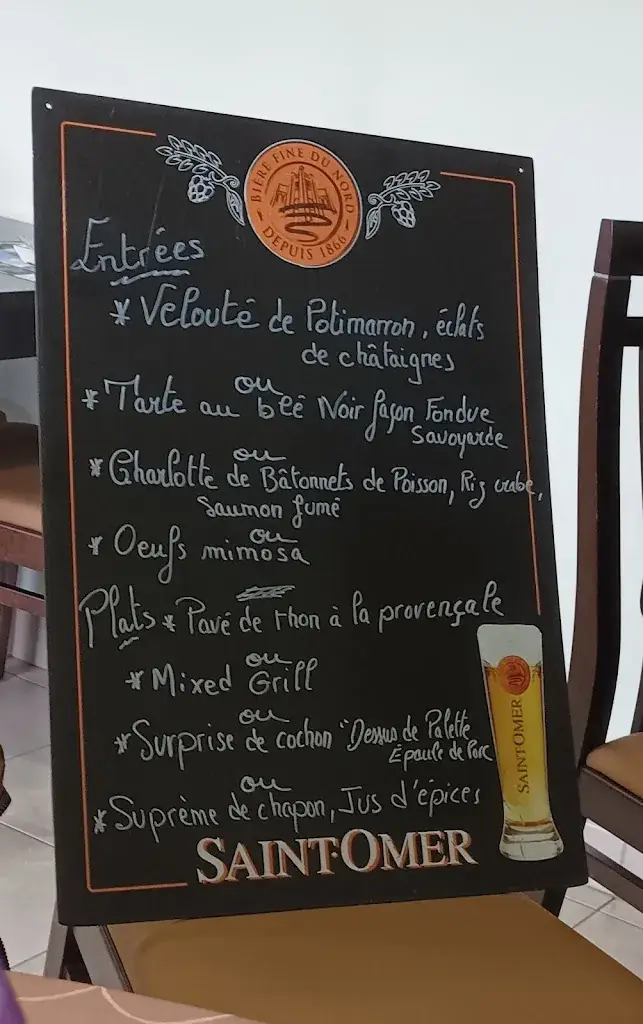 BIÈRE FINE DU NORD
DEPUIS 1866
Entrées
* Velouté de Potimarron, éclats
de châtaignes
ou
* Tarte au blé Noir façon Fondue
Savoyarde
ou
* Charlotte de Bâtonnets de Poisson, Riz crabe,
Saumon fumé
ou
* Oeufs mimosa
Plats * Pavé de thon à la provençale
ou
* Mixed Grill
ou
* Surprise de cochon "Dessus de Palette
Épaule de Porc
ou
* Suprême de chapon, Jus d'épices
SAINT-OMER
SAINT·OMER